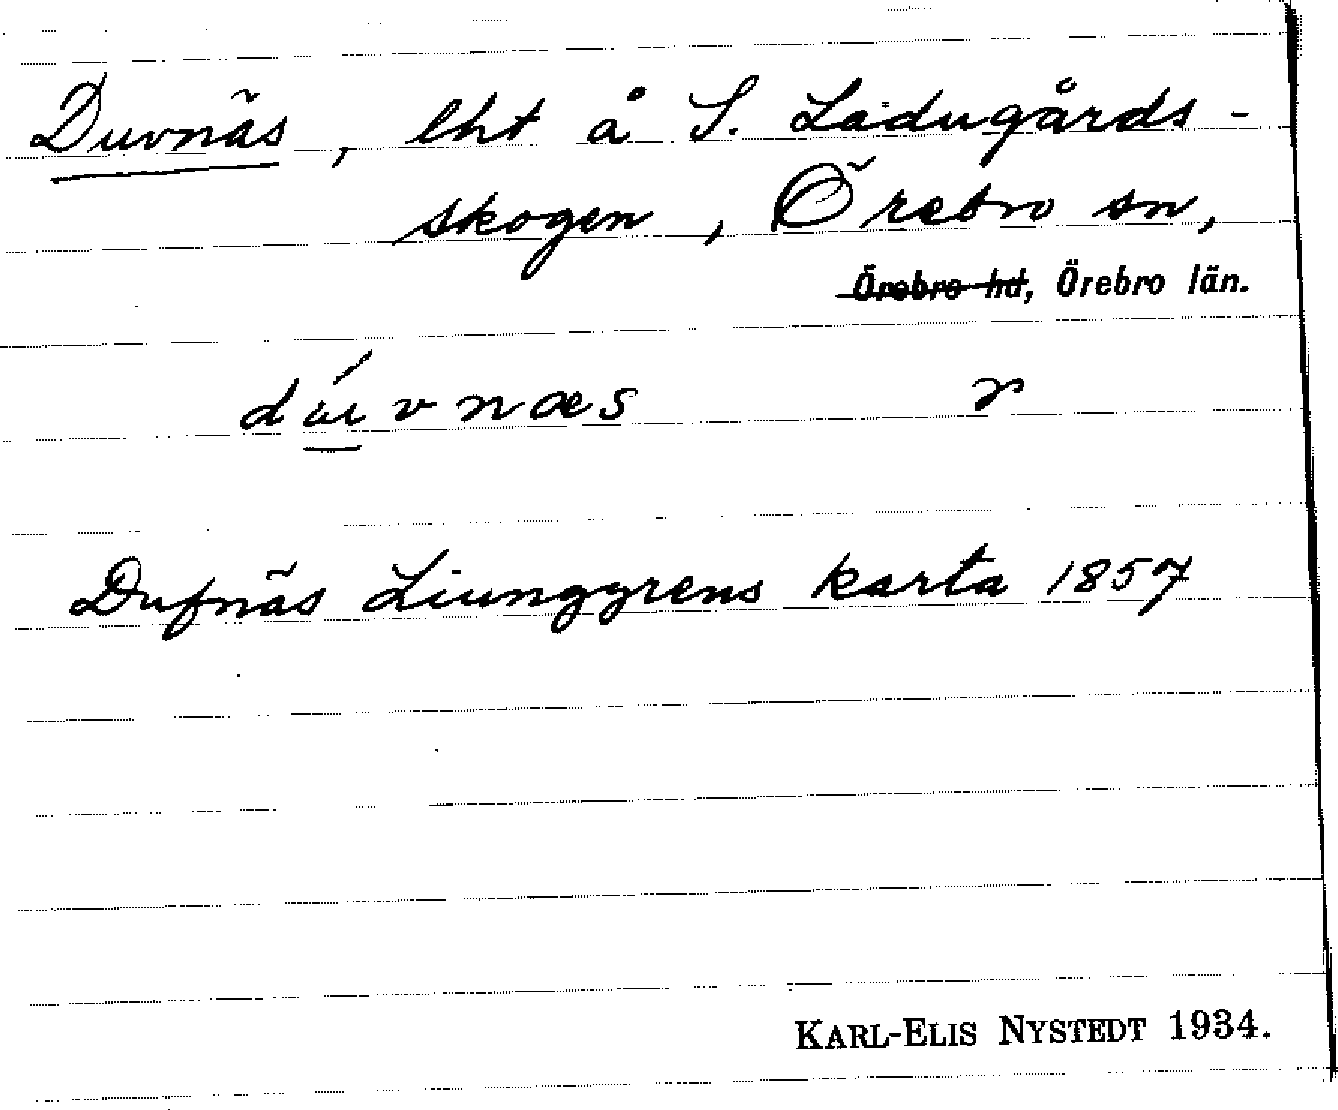 Duvnäs, lht å S. Ladugårds-
skogen, Örebro sn,
Örebro hd, Örebro län.
dúvnæs r
Dufnäs Liunggrens karta 1857
KARL-ELIS NYSTEDT 1934.